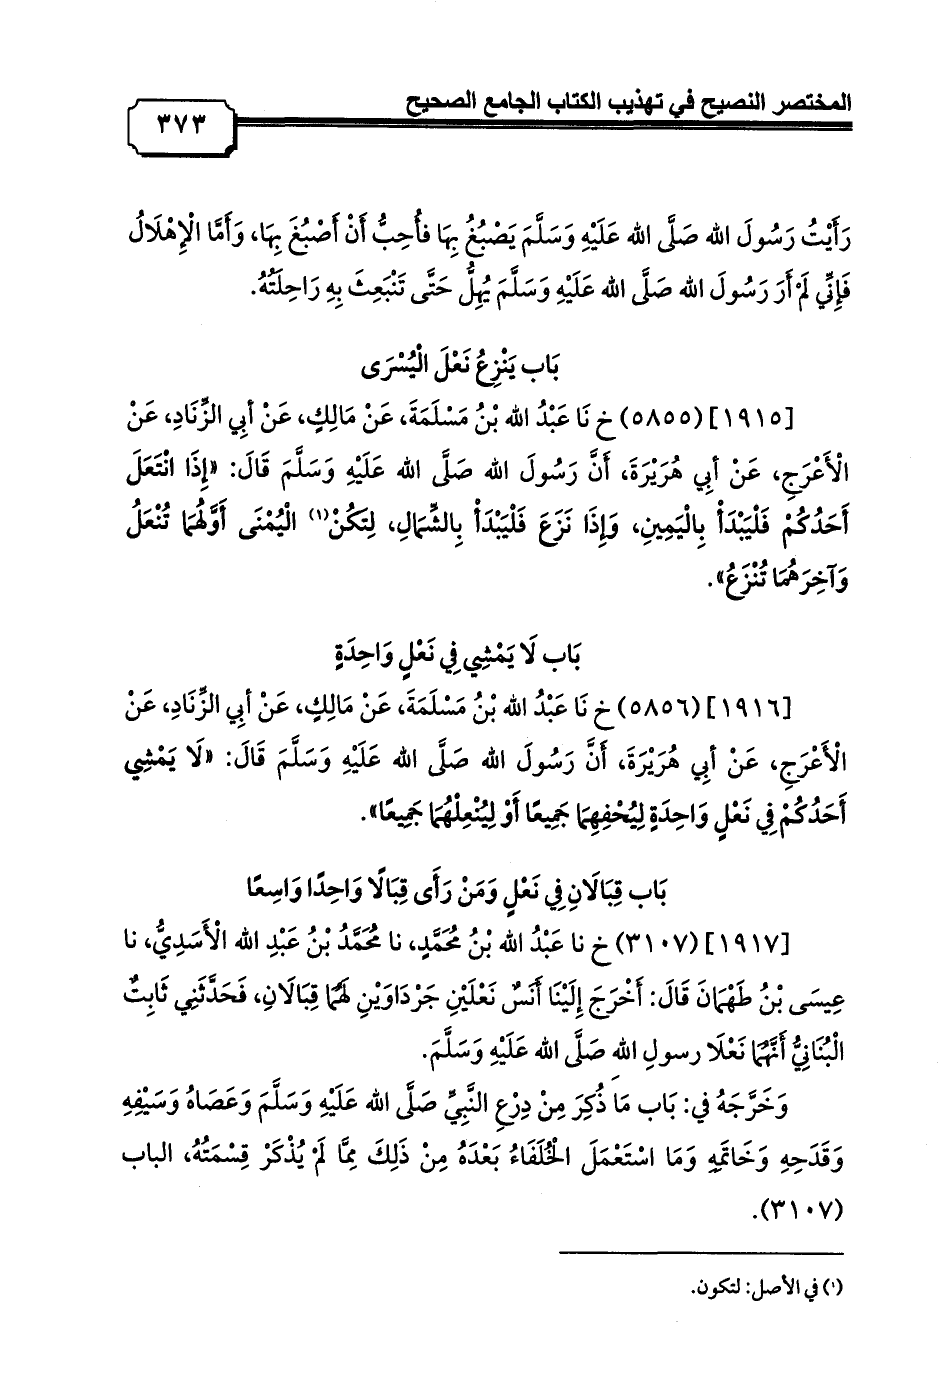 المختصر النصيح في تهذيب الكتاب الجامع الصحيح
٣٧٣
رَأَيْتُ رَسُولَ الله صَلَّى الله عَلَيْهِ وَسَلَّمَ يَصْبُغُ بِهَا فأُحِبُّ أَنْ أَصْبُغَ بِهَا، وَأَمَّا الْإِهْلَالُ
فَإِنِّي لَمْ أَرَ رَسُولَ الله صَلَّى الله عَلَيْهِ وَسَلَّمَ يُهِلُّ حَتَّى تَنْبَعِثَ بِهِ رَاحِلَتُهُ.
بَاب يَنْزِعُ نَعْلَ الْيُسْرَى
[١٩١٥] (٥٨٥٥) خ نَا عَبْدُ الله بْنُ مَسْلَمَةَ، عَنْ مَالِكٍ، عَنْ أبي الزِّنَادِ، عَنْ
الْأَعْرَجِ، عَنْ أبِي هُرَيْرَةَ، أَنَّ رَسُولَ الله صَلَّى الله عَلَيْهِ وَسَلَّمَ قَالَ: «إِذَا انْتَعَلَ
أَحَدُكُمْ فَلْيَبْدَأْ بِالْيَمِينِ، وَإِذَا نَزَعَ فَلْيَبْدَأْ بِالشِّمَالِ، لِتَكُنْ(١) الْيُمْنَى أَوَّلَهُمَا تُنْعَلُ
وَآخِرَهُمَا تُنْزَعُ».
بَاب لَا يَمْشِي فِي نَعْلٍ وَاحِدَةٍ
[١٩١٦] (٥٨٥٦) خ نَا عَبْدُ الله بْنُ مَسْلَمَةَ، عَنْ مَالِكٍ، عَنْ أبي الزِّنَادِ، عَنْ
الْأَعْرَجِ، عَنْ أبِي هُرَيْرَةَ، أَنَّ رَسُولَ الله صَلَّى الله عَلَيْهِ وَسَلَّمَ قَالَ: «لَا يَمْشِي
أَحَدُكُمْ فِي نَعْلٍ وَاحِدَةٍ لِيُحْفِهِمَا جَمِيعًا أَوْ لِيُنْعِلْهُمَا جَمِيعًا».
بَاب قِبَالَانِ فِي نَعْلٍ وَمَنْ رَأَى قِبَالًا وَاحِدًا وَاسِعًا
[١٩١٧] (٣١٠٧) خ نا عَبْدُ الله بْنُ مُحَمَّدٍ، نا مُحَمَّدُ بْنُ عَبْدِ الله الْأَسَدِيُّ، نا
عِيسَى بْنُ طَهْمَانَ قَالَ: أَخْرَجَ إِلَيْنَا أَنَسٌ نَعْلَيْنِ جَرْدَاوَيْنِ لَهُمَا قِبَالَانِ، فَحَدَّثَنِي ثَابِتٌ
الْبُنَانِيُّ أَنَّهُمَا نَعْلَا رسولِ الله صَلَّى الله عَلَيْهِ وَسَلَّمَ.
وَخَرَّجَهُ في: بَاب مَا ذُكِرَ مِنْ دِرْعِ النَّبِيِّ صَلَّى الله عَلَيْهِ وَسَلَّمَ وَعَصَاهُ وَسَيْفِهِ
وَقَدَحِهِ وَخَاتَمِهِ وَمَا اسْتَعْمَلَ الْخُلَفَاءُ بَعْدَهُ مِنْ ذَلِكَ مِمَّا لَمْ يُذْكَرْ قِسْمَتُهُ، الباب
(٣١٠٧).
(١) في الأصل: لتكون.